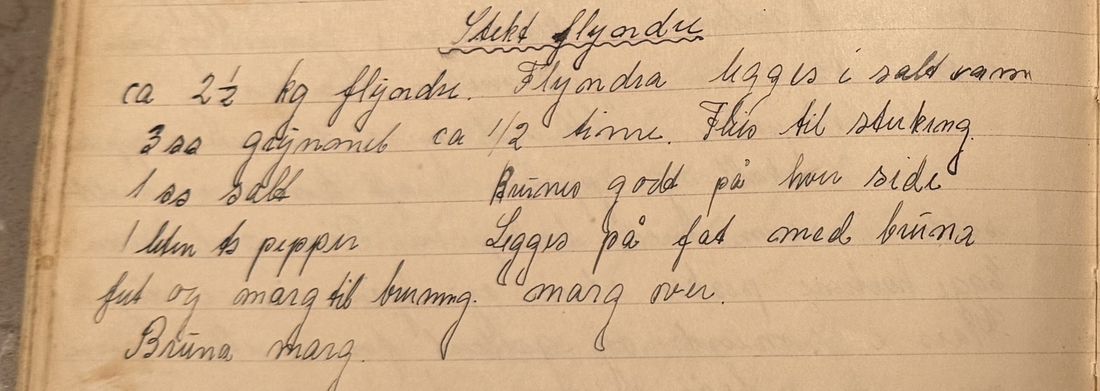 Stekt flyndre
ca 2 1/2 kg flyndre. Flyndra legges i salt vann
3 ss grynmel ca 1/2 time. Flås til steking.
1 ss salt Brunes godt på hver side
1 liten ts pepper Legges på fat med bruna
fett og marg til bruning. marg over.
Bruna marg.